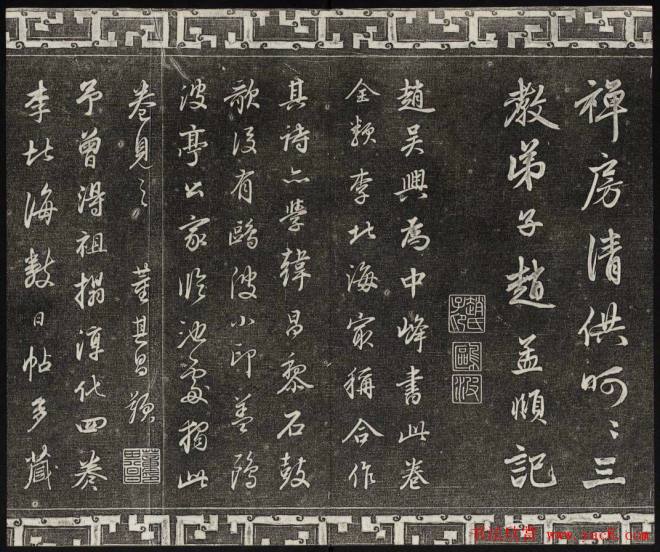 禪房清供呵〻三
教弟子趙孟頫記
趙吳興為中峰書此卷
全類李北海最稱合作
其詩亦學韓昌黎石鼓
歌後有鷗波小印蓋鷗
波亭公家臨池處獨此
卷見之 董其昌題
予曾得祖搨淳化四卷
李北海數日帖多藏
书法欣赏 www.yac8.com